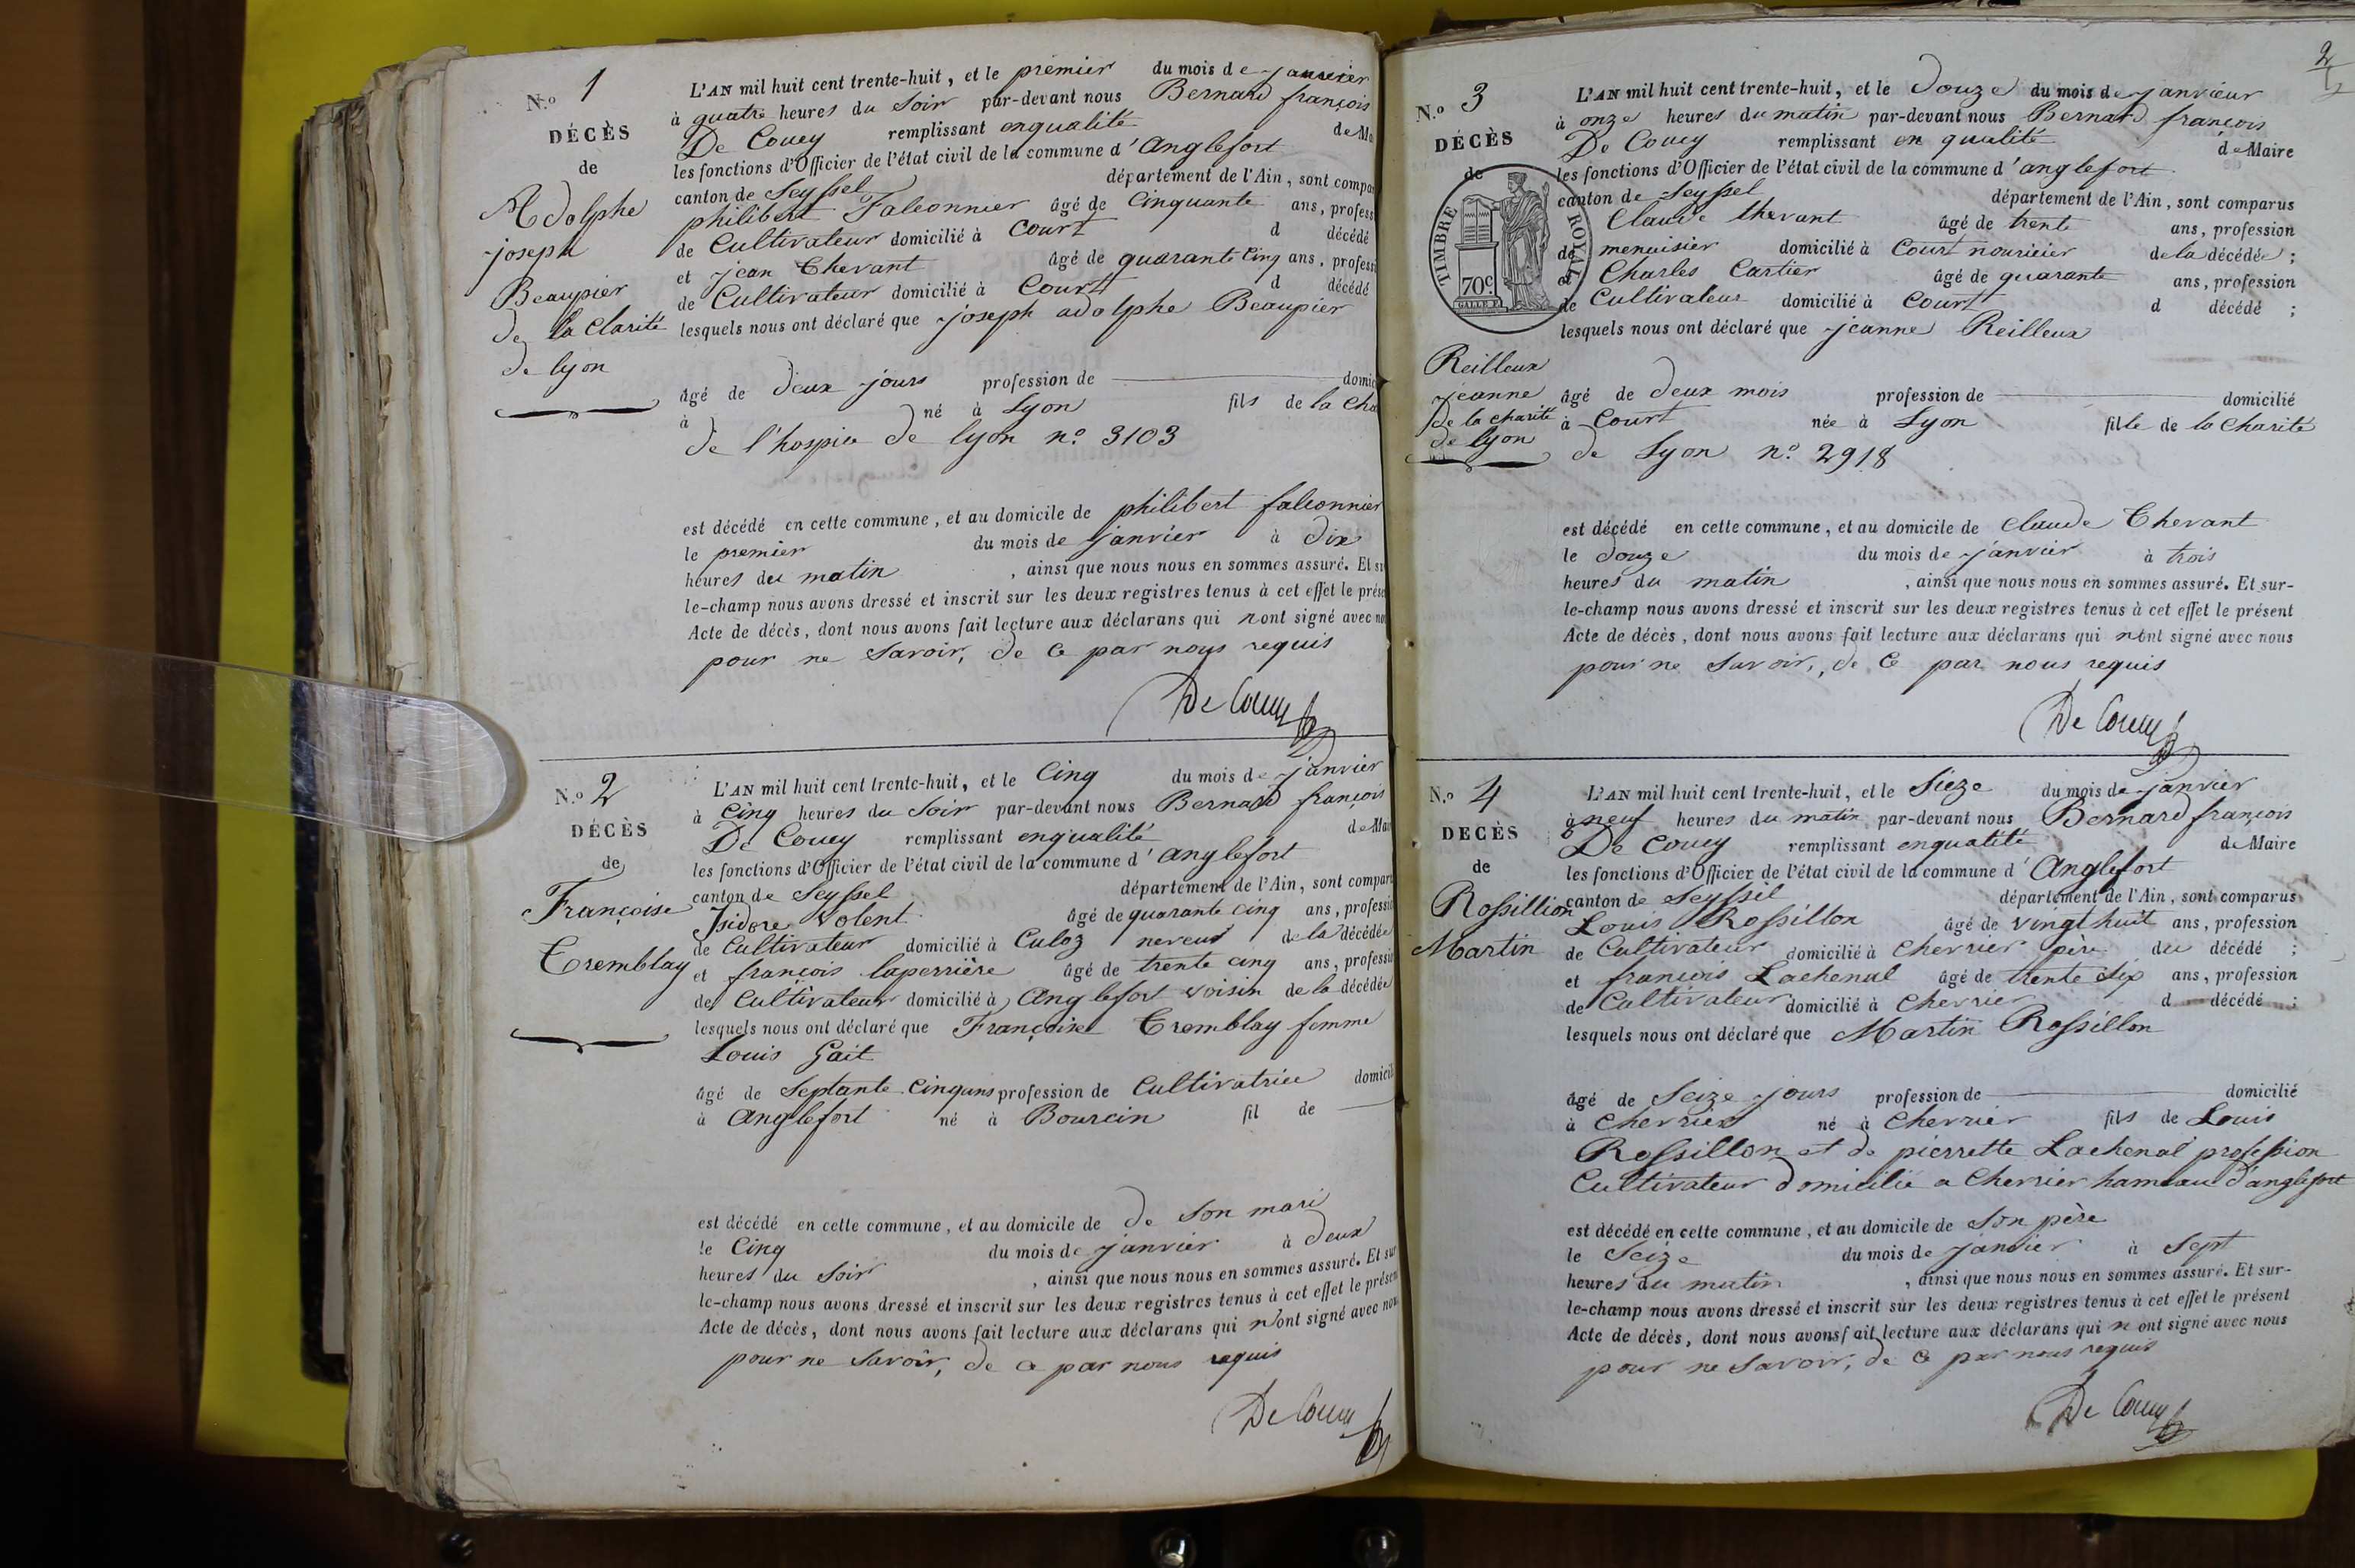 N.o 1
DÉCÈS
de
Adolphe
joseph
Beaupier
de la Clarité
de lyon
L'AN mil huit cent trente-huit, et le premier du mois de janvier
à quatre heures du Soir par-devant nous Bernard françois
De Coucy remplissant enqualité de Ma
les fonctions d'Officier de l'état civil de la commune d'anglefort
canton de Seyssel département de l'Ain, sont compar
philibert Falconnier âgé de Cinquante ans, profess
de Cultivateur domicilié à Court d décédé
et jean Chevant âgé de quarante Cinq ans, professi
de Cultivateur domicilié à Court d décédé
lesquels nous ont déclaré que joseph adolphe Beaupier
âgé de deux jours profession de domic
à né à Lyon fils de la Cha
de l'hospice de lyon no. 3103
est décédé en cette commune, et au domicile de philibert falconnier
le premier du mois de janvier à dix
heures du matin , ainsi que nous nous en sommes assuré. Et su
le-champ nous avons dressé et inscrit sur les deux registres tenus à cet effet le prése
Acte de décès, dont nous avons fait lecture aux déclarans qui nont signé avec no
pour ne Savoir, de Ce par nous requis
De Coucy
N.o 2
DÉCÈS
de
Françoise
Tremblay
L'AN mil huit cent trente-huit, et le Cinq du mois de janvier
à Cinq heures du Soir par-devant nous Bernard françois
De Coucy remplissant enqualité de Mai
les fonctions d'Officier de l'état civil de la commune d'anglefort
canton de Seyssel département de l'Ain, sont compar
Isidore volent âgé de quarante cinq ans, professi
de Cultivateur domicilié à Culoz neveut de la décédée
et françois laperrière âgé de trente cinq ans, professi
de Cultivateur domicilié à Anglefort voisin de la décédée
lesquels nous ont déclaré que Françoise Tremblay femme
Louis Gait
âgé de Septante Cinq ans profession de Cultivatrice domicil
à Anglefort né à Bourcin fil de
est décédé en cette commune, et au domicile de de Son mari
le Cinq du mois de janvier à deux
heures du Soir , ainsi que nous nous en sommes assuré. Et sur
le-champ nous avons dressé et inscrit sur les deux registres tenus à cet effet le présen
Acte de décès, dont nous avons fait lecture aux déclarans qui n'ont signé avec nou
pour ne Savoir, de ce par nous requis
De Coucy
2
N.o 3
DÉCÈS
de
TIMBRE ROYAL
70c
Reilleux
jeanne
de la charité
de lyon
L'AN mil huit cent trente-huit, et le Douze du mois de janvieur
à onze heures du matin par-devant nous Bernard françois
De Coucy remplissant en qualité de Maire
les fonctions d'Officier de l'état civil de la commune d'anglefort
canton de Seyssel département de l'Ain, sont comparus
Claude thevant âgé de trente ans, profession
de menuisier domicilié à Court nouricier de la décédée ;
et Charles Cartier âgé de quarante ans, profession
de Cultivateur domicilié à Court d décédé ;
lesquels nous ont déclaré que jeanne Reilleux
âgé de deux mois profession de domicilié
à Court née à Lyon fille de la Charité
de Lyon no. 2918
est décédé en cette commune, et au domicile de Claude Chevant
le Douze du mois de janvier à trois
heures du matin , ainsi que nous nous en sommes assuré. Et sur-
le-champ nous avons dressé et inscrit sur les deux registres tenus à cet effet le présent
Acte de décès, dont nous avons fait lecture aux déclarans qui nont signé avec nous
pour ne Savoir, de Ce par nous requis
De Coucy
N.o 4
DECÈS
de
Rossillion
Martin
L'AN mil huit cent trente-huit, et le Sieze du mois de janvier
à neuf heures du matin par-devant nous Bernard françois
De Coucy remplissant enqualité de Maire
les fonctions d'Officier de l'état civil de la commune d'Anglefort
canton de Seyssil département de l'Ain, sont comparus
Louis Rossillon âgé de vingt huit ans, profession
de Cultivateur domicilié à Chevrier père du décédé ;
et françois Lachenal âgé de trente Six ans, profession
de Cultivateur domicilié à Chevrier d décédé ;
lesquels nous ont déclaré que Martin Rossillon
âgé de Seize jours profession de domicilié
à Chevrier né à Chevrier fils de Louis
Rossillon et de pierrette Lachenal profession
Cultivateur domicilié a Chevrier hameau d'anglefort
est décédé en cette commune, et au domicile de Son père
le Seize du mois de janvier à Sept
heures du matin , ainsi que nous nous en sommes assuré. Et sur-
le-champ nous avons dressé et inscrit sur les deux registres tenus à cet effet le présent
Acte de décès, dont nous avons fait lecture aux déclarans qui n ont signé avec nous
pour ne Savoir, de Ce par nous requis
De Coucy